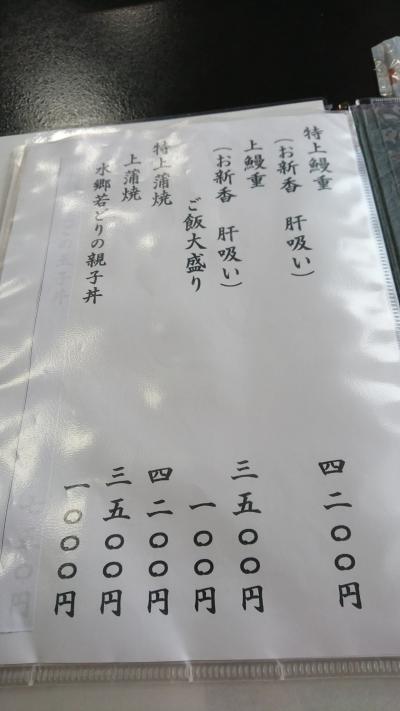 特上鰻重 四二〇〇円
(お新香 肝吸い)
上鰻重 三五〇〇円
(お新香 肝吸い)
ご飯大盛り 一〇〇円
特上蒲焼 四二〇〇円
上蒲焼 三五〇〇円
水郷若どりの親子丼 一〇〇〇円